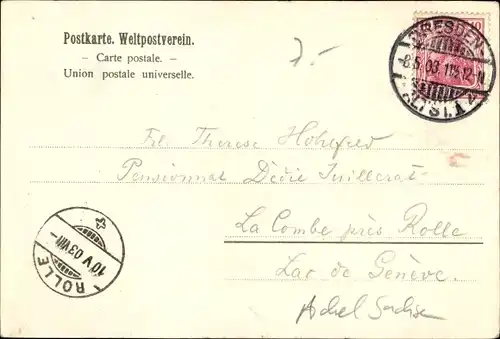 Postkarte. Weltpostverein.
– Carte postale. –
Union postale universelle.
7.-
10
DRESDEN
8.5.03 11½-12-N
ALTST. 1
Frl Therese Hohlfeld
Pensionnat Dédie Juillerat
La Combe près Rolle
Lac de Genève.
Adel Sachsen
10 V 03 VIII -
ROLLE